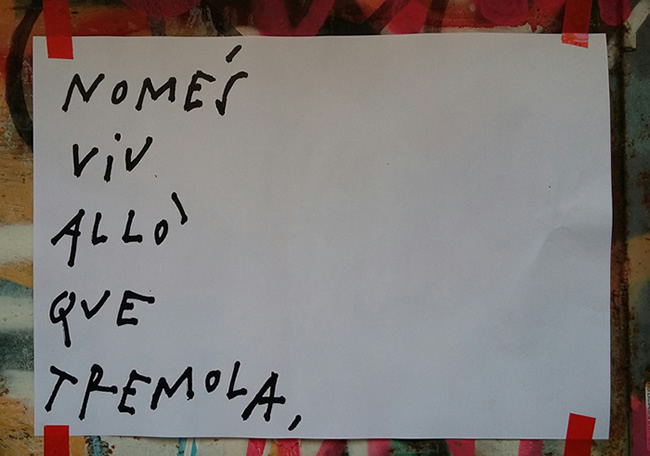 NOMÉS
ViV
ALLÒ
QUE
TREMOLA,